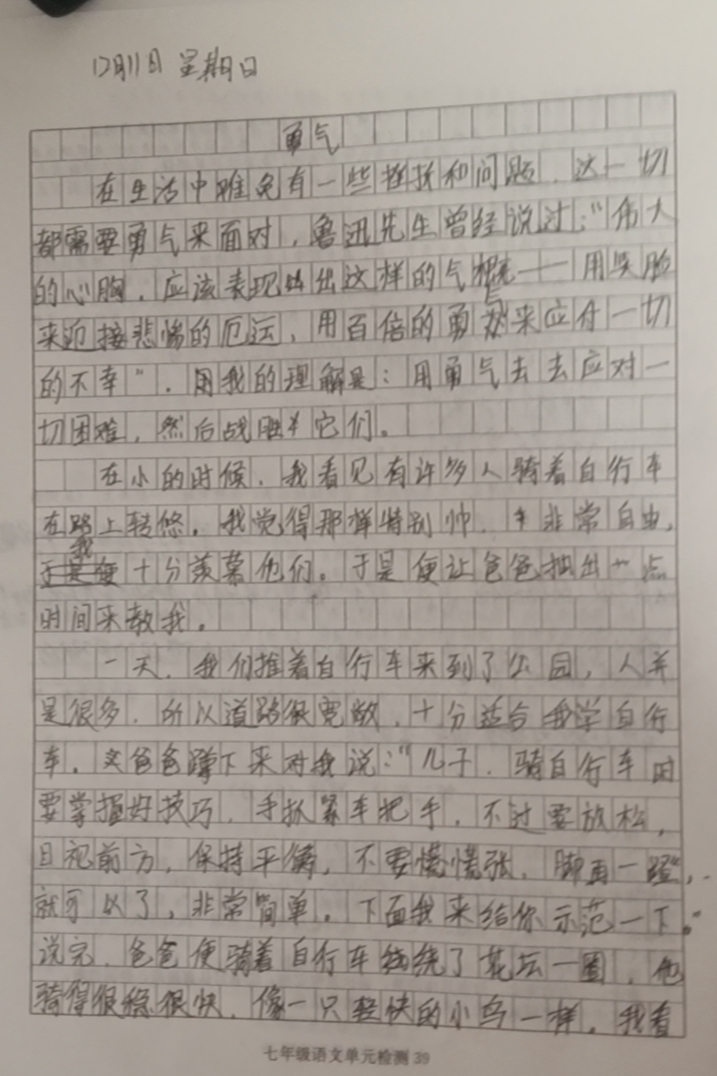 12月11日 星期日
勇气
在生活中难免有一些挫折和问题，这一切
都需要勇气来面对，鲁迅先生曾经说过："伟大
的心胸，应该表现出这样的气概——用笑脸
来迎接悲惨的厄运，用百倍的勇气来应付一切
的不幸"。用我的理解是：用勇气去去应对一
切困难，然后战胜它们。
在小的时候，我看见有许多人骑着自行车
在路上转悠，我觉得那样特别帅，非常自由，
我十分羡慕他们。于是便让爸爸抽出一点
时间来教我。
一天，我们推着自行车来到了公园，人并
是很多，所以道路很宽敞，十分适合我学自行
车。爸爸蹲下来对我说："儿子，骑自行车时
要掌握好技巧，手抓紧车把手，不过要放松，
目视前方，保持平衡，不要慌慌张，脚再一蹬，
就可以了，非常简单。下面我来给你示范一下。"
说完，爸爸便骑着自行车绕了花坛一圈，他
骑得很稳很快，像一只轻快的小鸟一样。我看
七年级语文单元检测 39